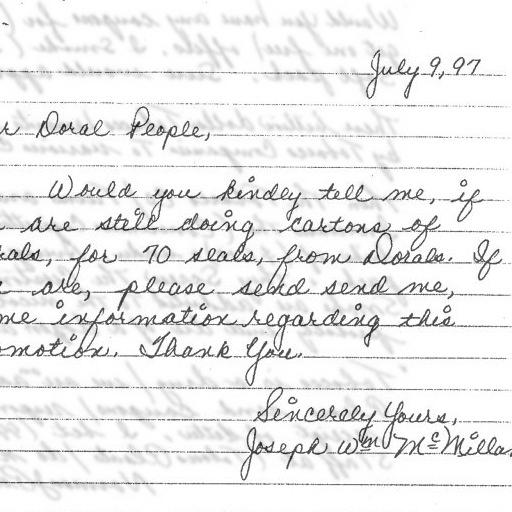 July 9, 97
r Doral People,
Would you kindley tell me, if
are still doing cartons of
rals, for 70 seals, from Dorals. If
are, please send send me,
me information regarding this
omotion. Thank You.
Sincerely Yours,
Joseph Wm McMilla